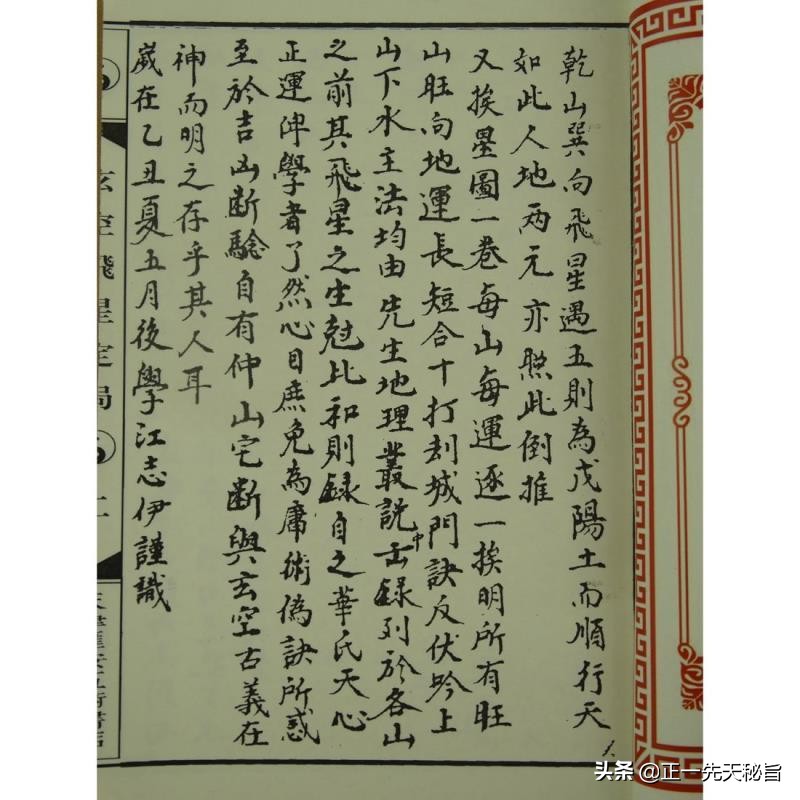 乾山巽向飛星遇五則為戊陽土而順行天
如此人地兩元亦照此倒推
又挨星圖一卷每山每運逐一挨明所有旺
山旺向地運長短合十打刼城門訣反伏吟上
山下水主法均由先生地理叢說中錄列於各山
之前其飛星之生尅比和則錄自之華氏天心
正運俾學者了然心目庶免為庸術偽訣所惑
至於吉凶斷驗自有仲山宅斷與玄空古義在
神而明之存乎其人耳
嵗在乙丑夏五月後學江志伊謹識
玄空飛星定局
头条 @正一先天秘旨